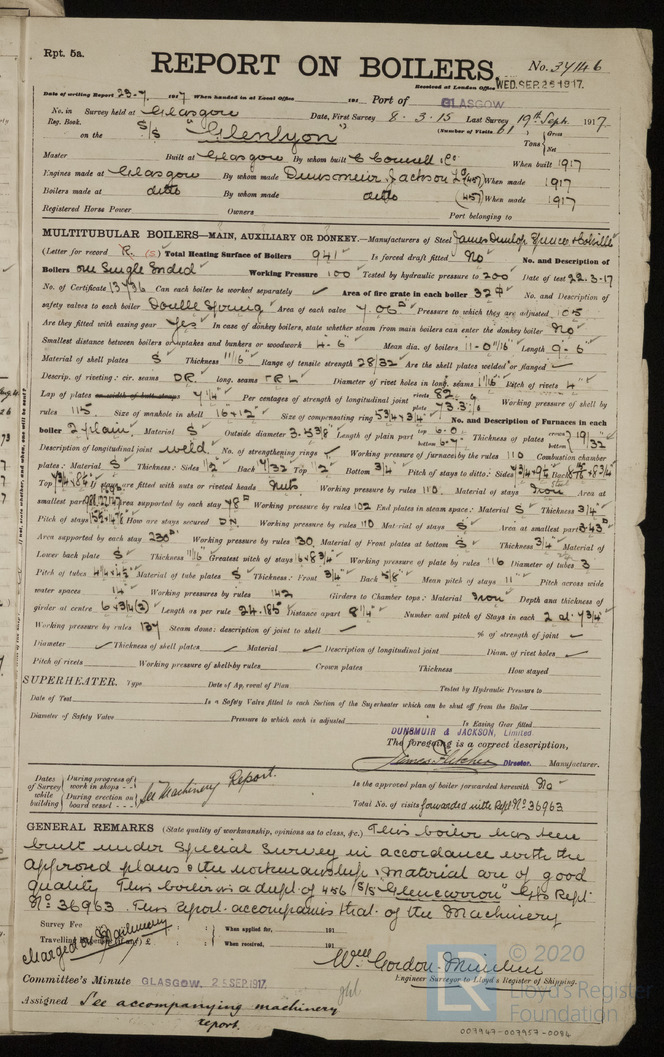 Rpt. 5a.
REPORT ON BOILERS.
No. 37146
Received at London Office WED. SEP. 26 1917.
Date of writing Report 23-7- 1917 When handed in at Local Office 191 Port of GLASGOW
No. in Survey held at Glasgow Date, First Survey 8-3-15 Last Survey 19th Sept. 1917
Reg. Book. (Number of Visits 61)
on the S/S "Glenlyon" Tons { Gross Net
Master Built at Glasgow By whom built C Connell & Co When built 1917
Engines made at Glasgow By whom made Dunsmuir Jackson Ld (457) When made 1917
Boilers made at ditto By whom made ditto (457) When made 1917
Registered Horse Power Owners Port belonging to
MULTITUBULAR BOILERS—MAIN, AUXILIARY OR DONKEY.—Manufacturers of Steel James Dunlop Spencer & Colville
(Letter for record R. (S)) Total Heating Surface of Boilers 941 Is forced draft fitted No No. and Description of
Boilers one Single Ended Working Pressure 100 Tested by hydraulic pressure to 200 Date of test 22-3-17
No. of Certificate 13736 Can each boiler be worked separately ✓ Area of fire grate in each boiler 32 No. and Description of
safety valves to each boiler Double Spring Area of each valve 7.06 Pressure to which they are adjusted 105
Are they fitted with easing gear Yes In case of donkey boilers, state whether steam from main boilers can enter the donkey boiler No
Smallest distance between boilers or uptakes and bunkers or woodwork 4-6 Mean dia. of boilers 11-0 11/16 Length 9-6
Material of shell plates S Thickness 11/16 Range of tensile strength 28/32 Are the shell plates welded or flanged
Descrip. of riveting: cir. seams D.R. long. seams T R L Diameter of rivet holes in long. seams 1 1/16 Pitch of rivets 4"
Lap of plates or width of butt straps 7 1/4 Per centages of strength of longitudinal joint rivets 82. plate 73.3 Working pressure of shell by
rules 115 Size of manhole in shell 16 x 12 Size of compensating ring 5 3/4 x 3/4 No. and Description of Furnaces in each
boiler 2 plain Material S Outside diameter 3-5 3/8 Length of plain part top 6-0 bottom 6-7 Thickness of plates crown bottom 19/32
Description of longitudinal joint weld No. of strengthening rings ✓ Working pressure of furnace by the rules 110 Combustion chamber
plates: Material S Thickness: Sides 1/2 Back 7/32 Top 1/2 Bottom 3/4 Pitch of stays to ditto: Sides Back
Top If stays are fitted with nuts or riveted heads Nuts Working pressure by rules 110 Material of stays Iron Area at
smallest part Area supported by each stay 78 Working pressure by rules 102 End plates in steam space: Material S Thickness 3/4
Pitch of stays How are stays secured D.N. Working pressure by rules 110 Material of stays S Area at smallest part 3.43
Area supported by each stay 230 Working pressure by rules 130 Material of Front plates at bottom S Thickness 3/4 Material of
Lower back plate S Thickness 11/16 Greatest pitch of stays Working pressure of plate by rules 116 Diameter of tubes 3
Pitch of tubes 4 1/4 x 4 1/2 Material of tube plates S Thickness: Front 3/4 Back 5/8 Mean pitch of stays 11 Pitch across wide
water spaces 14 Working pressures by rules 142 Girders to Chamber tops: Material Iron Depth and thickness of
girder at centre 6 x 3/4 (2) Length as per rule 24.185 Distance apart 8 1/4 Number and pitch of Stays in each 2 at 7 3/4
Working pressure by rules 137 Steam dome: description of joint to shell ✓ % of strength of joint ✓
Diameter ✓ Thickness of shell plates ✓ Material ✓ Description of longitudinal joint ✓ Diam. of rivet holes ✓
Pitch of rivets Working pressure of shell by rules Crown plates Thickness How stayed
SUPERHEATER. Type Date of Approval of Plan Tested by Hydraulic Pressure to
Date of Test Is a Safety Valve fitted to each Section of the Superheater which can be shut off from the Boiler
Diameter of Safety Valve Pressure to which each is adjusted Is Easing Gear fitted
DUNSMUIR & JACKSON, Limited
The foregoing is a correct description,
James Fletcher Director. Manufacturer.
Dates of Survey while building { During progress of work in shops - - During erection on board vessel - - - See Machinery Report.
Is the approved plan of boiler forwarded herewith No
Total No. of visits forwarded with Rept No 36963
GENERAL REMARKS (State quality of workmanship, opinions as to class, &c.) This boiler has been
built under Special Survey in accordance with the
approved plans & the workmanship & material are of good
quality This boiler is a dupl. of 456 S/S "Glencorron" Gls Rept.
No 36963. This report accompanies that of the Machinery
Survey Fee When applied for, 191
Travelling Expenses (if any) £ When received, 191
charged on Machinery
Wm Gordon-
Engineer Surveyor to Lloyd's Register of Shipping.
Committee's Minute GLASGOW. 25 SEP. 1917.
Assigned See accompanying machinery
report.
© 2020
Lloyd's Register
Foundation
007947-007957-0084